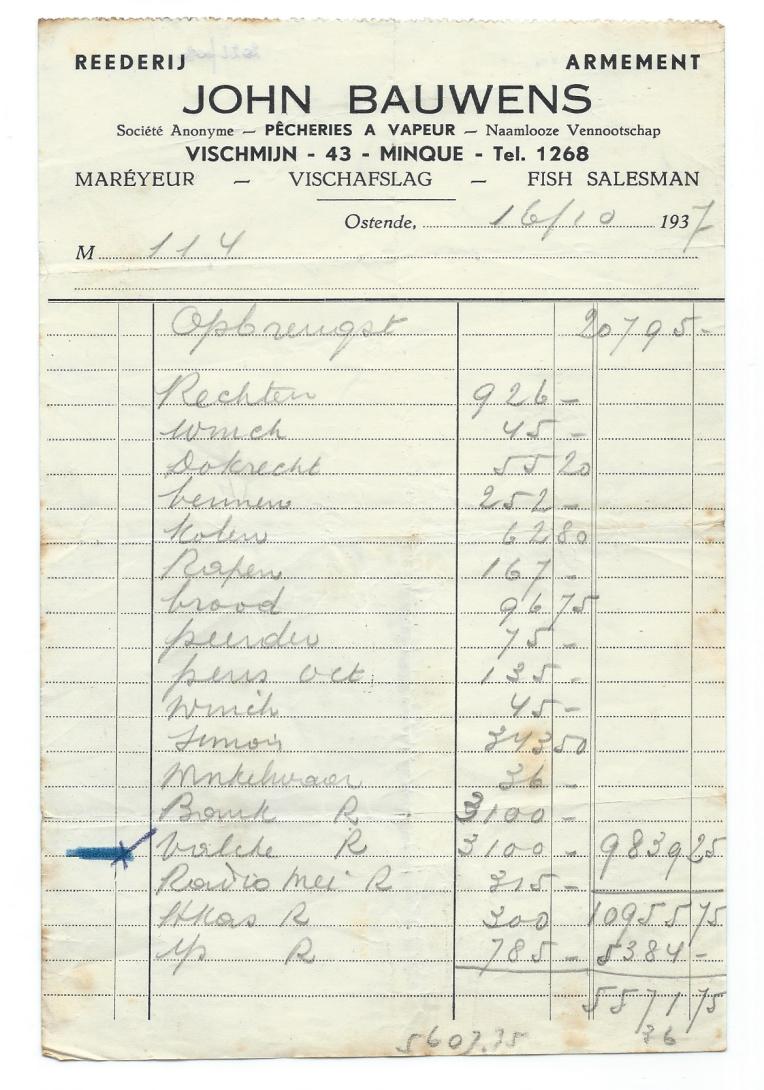 REEDERIJ ARMEMENT
JOHN BAUWENS
Société Anonyme — PÊCHERIES A VAPEUR — Naamlooze Vennootschap
VISCHMIJN - 43 - MINQUE - Tel. 1268
MARÉYEUR — VISCHAFSLAG — FISH SALESMAN
Ostende, 16/10 1937
M 114
Opbrengst 20795-
Rechten 926-
Winch 45-
Dokrecht 55 20
bennen 252-
Kolen 62 80
Rapen 167-
brood 96 75
peerden 75-
pens oct. 135-
Winch 45-
Simoin 343 50
Winkelwaar 36-
Bank R 3100-
Valcke R 3100- 9839 25
Radio Mei R 315-
HKas R 300 10955 75
R 785- 5384-
5571 75
5607.75 36